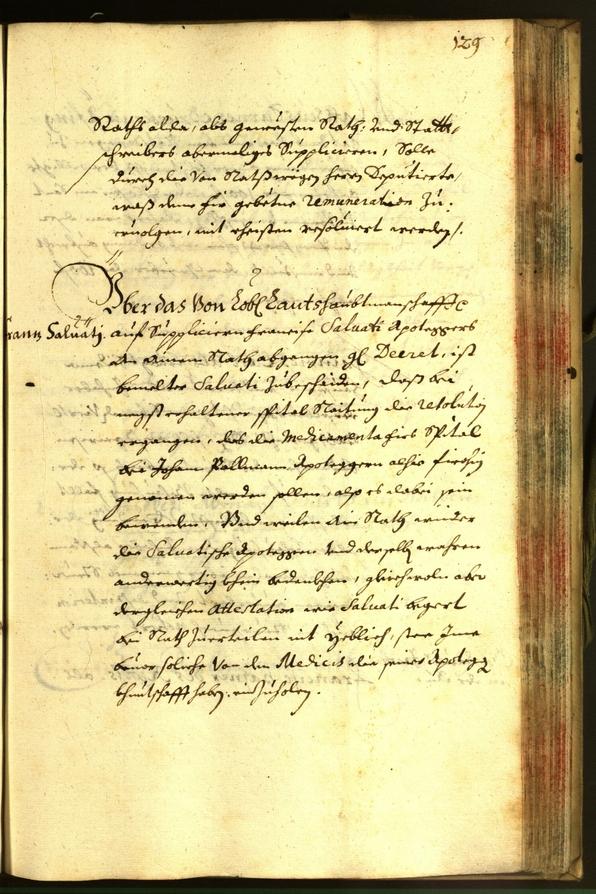 129
Raths alda, als gewesten Rath: Und Statt,
schreibers abermaliges Supplicieren, Solle
durch die Von Rathswegen herrn Deputierte,
waß deme für gebetne remuneration Zu,
ervolgen, mit ehisten resolviert werden.
Über das Von Lobl: Lantshaubtmanschafft
Frantz Saluati. auf Suppliciern Francisc Saluati Apoteggers
An Ainem Rath abgangen gl: Decret, ist
bemelter Saluati Zubeschaiden, daß bei
negst erhaltener Spital Raitung die resolution
ergangen, das die Medicamenta firs Spital
bei Johann Pollmann Apoteggern alhie firohin
genomen werden sollen, also es dabei sein
bewenden, Und weilen Ain Rath wider
die Saluatische Apoteggen Und derselben wahren
anderwertig khein bedenkhen, gleichwoln aber
dergleichen Attestation wie Saluati begert
bei Rath Zuertailen nit yeblich, stee Ime
beuor soliche Von den Medicis die seines Apotegg
khuntschafft haben, einzuholen.